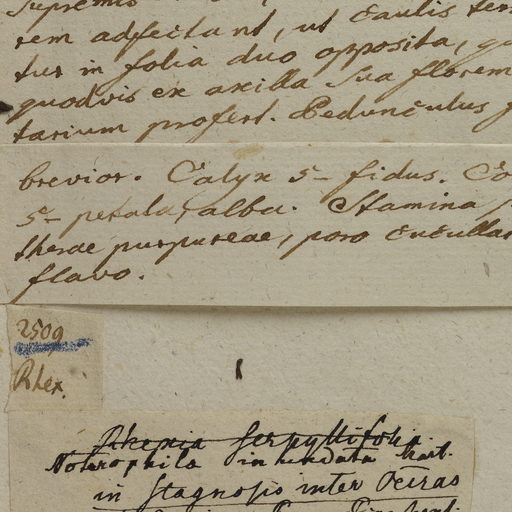 supremis
rem adfectant, ut caulis
tur in folia duo opposita,
quodvis ex axilla sua florem
tarium profert. Pedunculus
brevior. Calyx 5-fidus.
5-petala, alba. Stamina
therae purpureae, poro
flavo.
2509
Rhex.
Rhexia serpyllifolia
Noterophila inundata Mart.
in stagnosis inter